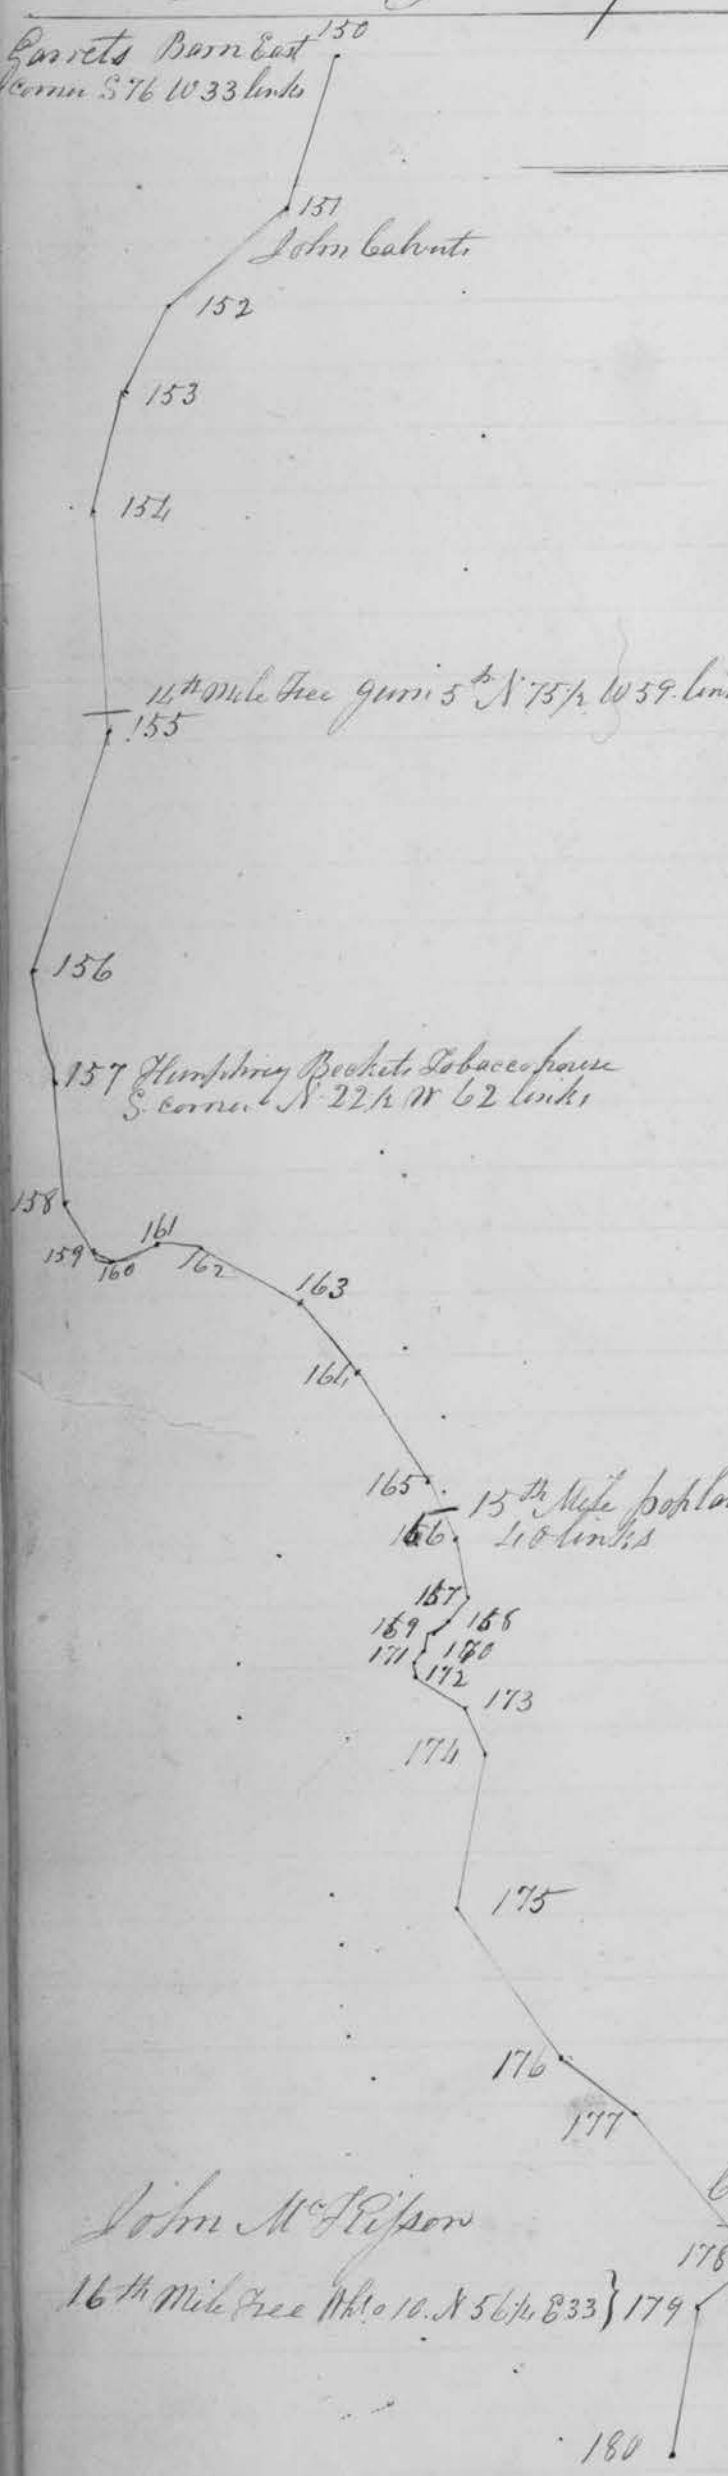 150
Garrets Barn East
corner S 76 W 33 links
151
John Calverts
152
153
154
14th Mile Tree gum 5th N 75 1/2 W 59 lin
155
156
157 Humphrey Beckets Tobacco house
S. corner N 22 1/2 W 62 links
158
159
160
161
162
163
164
165
15th Mile popla
40 links
166
167
168
169
170
171
172
173
174
175
176
177
John Mc
178
16th Mile Tree Wh. o 10. N 56 1/4 E 33 } 179
180